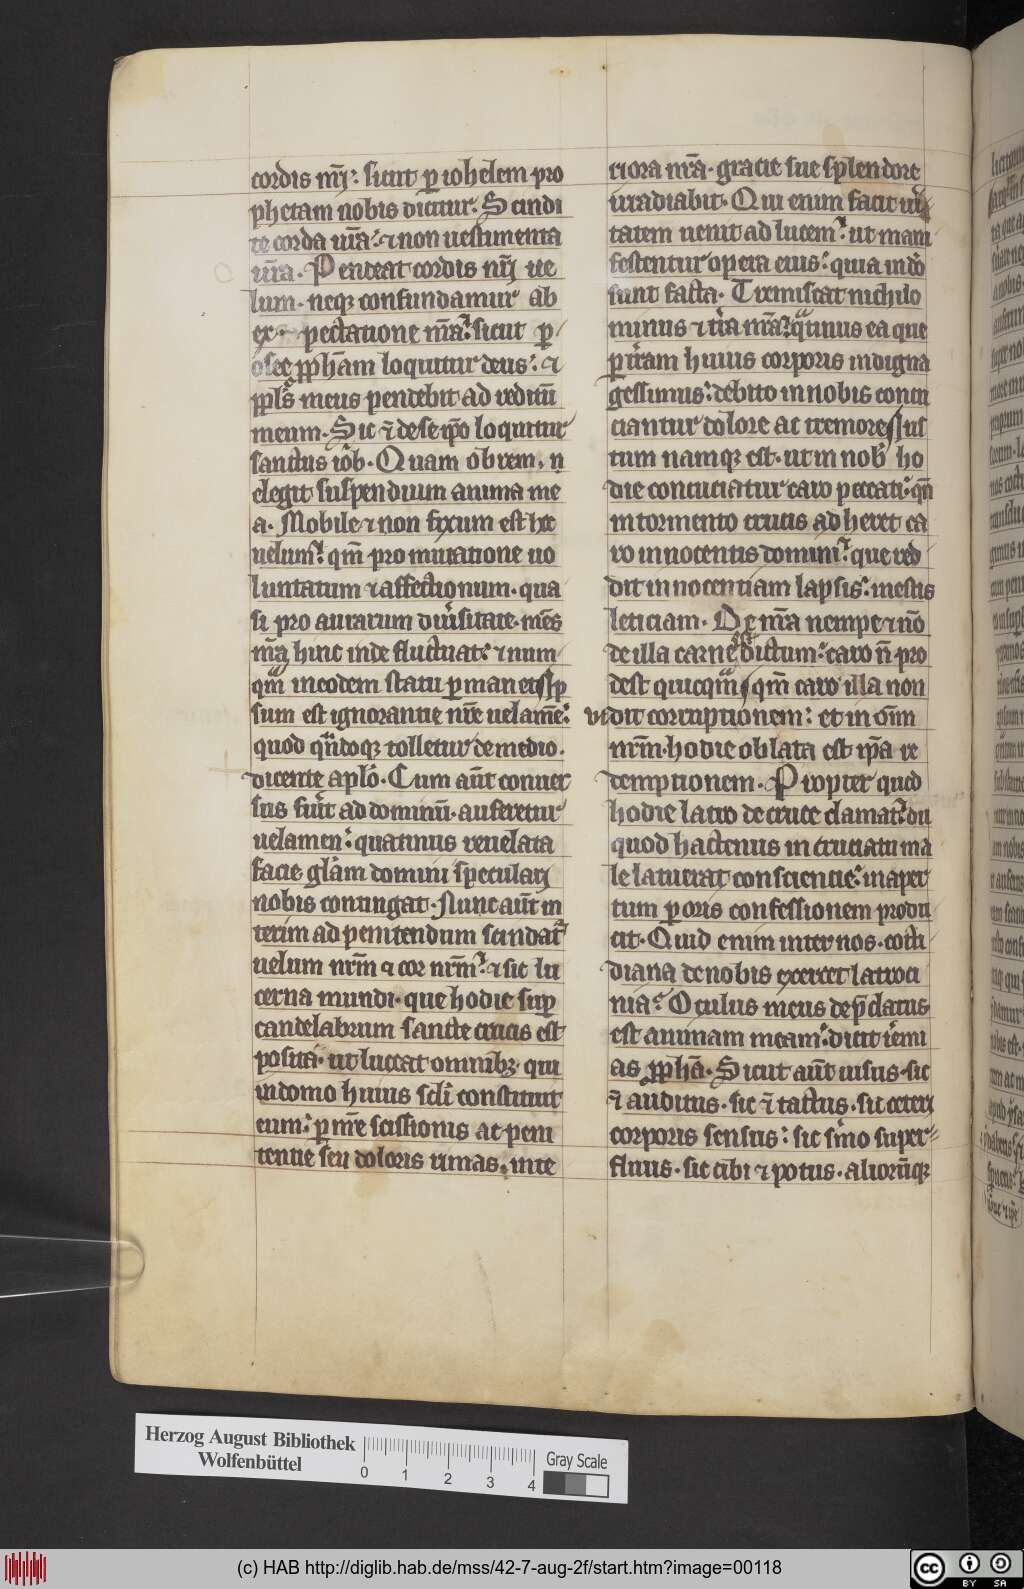 cordis nr̄i: sicut ꝑ iohelem pro
phetam nobis dicitur: Scindi
te corda ur̄a: ⁊ non uestimenta
ur̄a. Pendeat cordis nr̄i ue
lum. neqꝫ confundamur ab
ex pectatione nr̄a: sicut ꝑ
osee ꝓph̄am loquitur deus: ⁊
ppl̄s meus pendebit ad reditū
meum. Sic ⁊ de se ip̄o loquitur
sanctus iob. Quam ob rem,
elegit suspendium anima me
a. Mobile ⁊ non fixum est hoc
uelum: qm̄ pro mutatione uo
luntatum ⁊ affectionum. qua
si pro aurarum diu̾sitate. mēs
nr̄a hinc inde fluctuat: ⁊ num
qͣm in eodem statu ꝑmanet. Ip
sum est ignorantie nr̄e uelam̄e:
quod qn̄doqꝫ tolletur de medio.
dicente aplo. Cum aūt conuer
sus fu̾it ad dominū. auferetur
uelamen: quatinus reuelata
facie gl̄am domini speculari
nobis contingat. Nunc aūt in
terim ad penitendum scindat̾
uelum nr̄m ⁊ cor nr̄m: ⁊ sic lu
cerna mundi. que hodie suꝑ
candelabrum sancte crucis est
posita. ut luceat omnibꝫ qui
in domo huius sc̄li constituit
eum: ꝑ me scissionis ac peni
tentie seu doloris rimas, inte
riora nr̄a. gracie sue splendore
irradiabit. Qui enim facit u̾i
tatem uenit ad lucem: ut mani
festentur opera eius: quia in deo
sunt facta. Tremiscat nichilo
minus ⁊ t̾ra nr̄a: qͣtinus ea que
ꝑ t̾ram huius corporis indigna
gessimus: debito in nobis concu
ciantur dolore ac tremore. Ius
tum namqꝫ est. ut in nobis ho
die concuciatur caro peccati: qn̄
in tormento crucis ad heret ca
ro innocentis domini: que red
dit innocentiam lapsis: mestis
leticiam. De nr̄a nempe ⁊ nō
de illa carne est dictum: caro n̄ pro
dest quicqͣm. qm̄ caro illa non
vidit corruptionem: et in om̄i
nr̄m. hodie oblata est ip̄a re
demptionem. Propter quod
hodie latro de cruce clamat: du
quod hactenus in cruciatu ma
le latuerat conscientie: in aper
tum ꝑ oris confessionem produ
cit. Quid enim inter nos. coti
diana de nobis exercet latroci
nia: Oculus meus dep̄datus
est animam meam: dicit iemi
as ꝓph̄a. Sicut aūt uisus. sic
⁊ auditus. sic ⁊ tactus. sic ceteri
corporis sensus: sic s̾mo super
fluus. sic cibi ⁊ potus. aliorūqꝫ
Herzog August Bibliothek
Wolfenbüttel
0 1 2 3 4
Gray Scale
(c) HAB http://diglib.hab.de/mss/42-7-aug-2f/start.htm?image=00118
cc BY SA